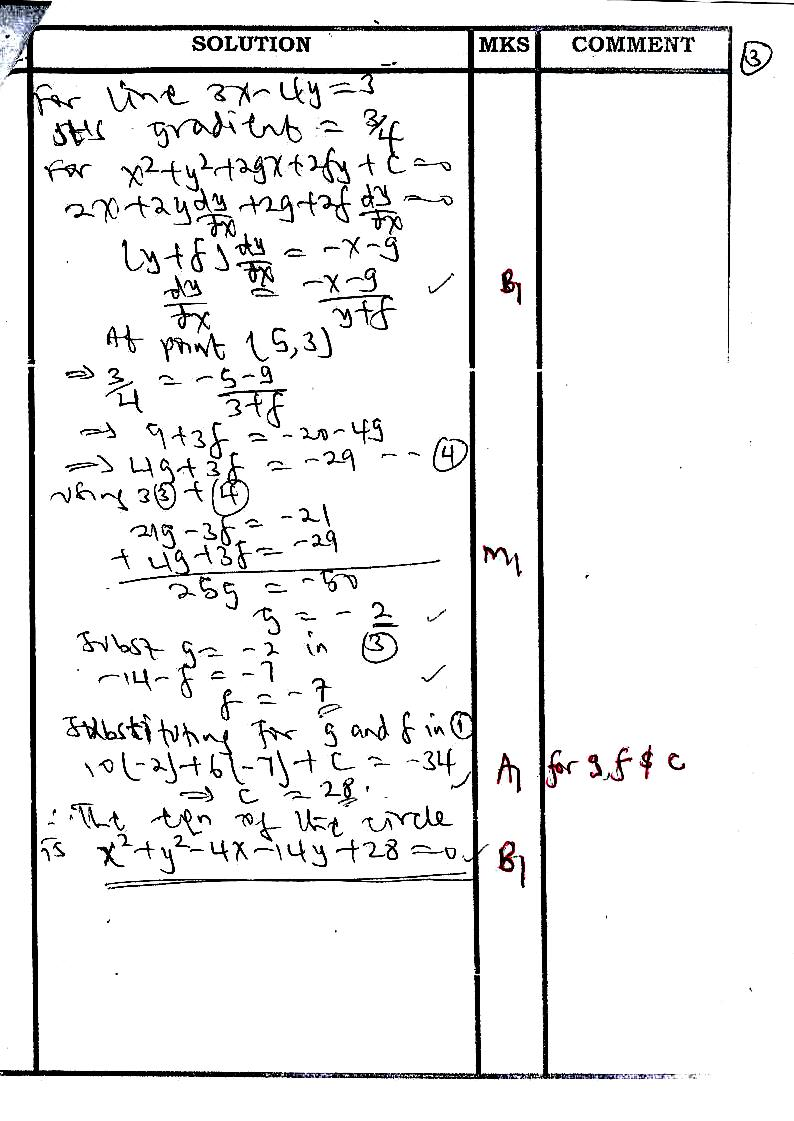 SOLUTION MKS COMMENT
③
For line 3x - 4y = 3
gradient = 3/4
For x² + y² + 2gx + 2fy + c = 0
2x + 2y dy/dx + 2g + 2f dy/dx = 0
(y + f) dy/dx = -x - g
dy/dx = (-x - g)/(y + f) ✓ B1
At point (5, 3)
⇒ 3/4 = (-5 - g)/(3 + f)
⇒ 9 + 3f = -20 - 4g
⇒ 4g + 3f = -29 -- ④
Using 3③ + ④
21g - 3f = -21
+ 4g + 3f = -29 M1
25g = -50
g = -2 ✓
Subst g = -2 in ③
-14 - f = -7 ✓
f = -7
Substituting for g and f in ①
10(-2) + 6(-7) + c = -34 ✓ A1 for g, f & c
⇒ c = 28.
∴ The eqn of the circle
is x² + y² - 4x - 14y + 28 = 0 ✓ B1